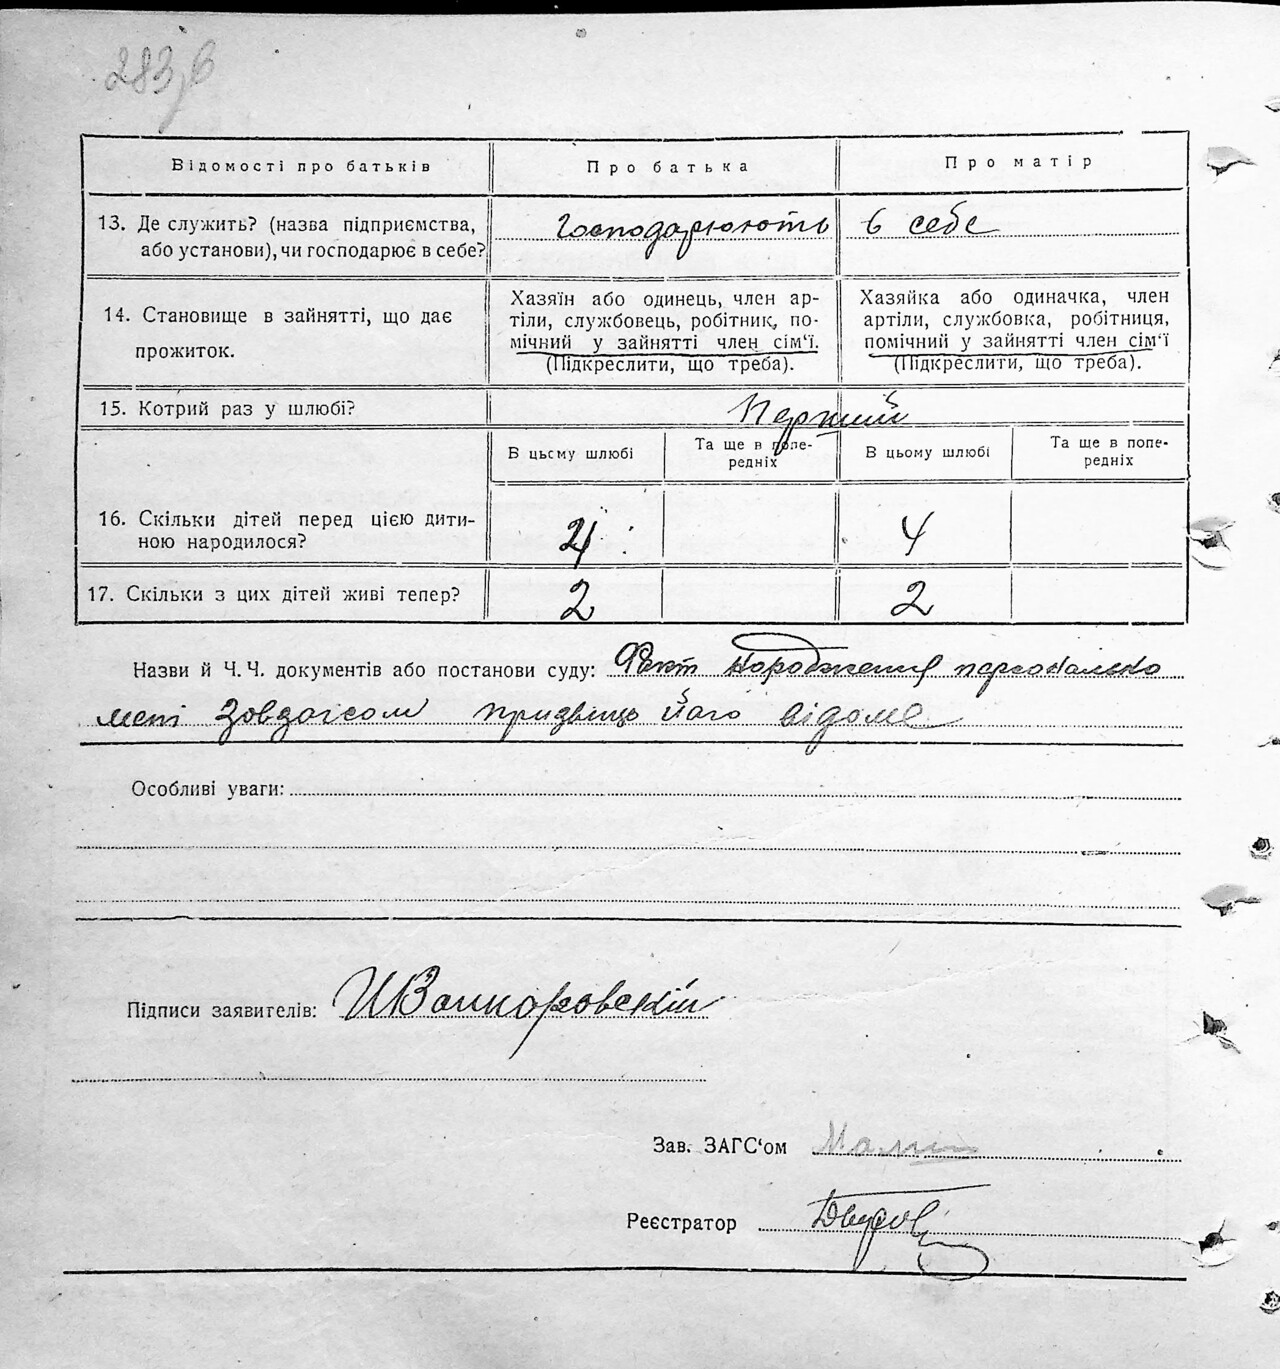 283,6
Відомості про батьків
Про батька
Про матір
13. Де служить? (назва підприємства,
або установи), чи господарює в себе?
Господарюють в себе
14. Становище в зайнятті, що дає
прожиток.
Хазяїн або одинець, член ар-
тіли, службовець, робітник, по-
мічний у зайнятті член сім'ї.
(Підкреслити, що треба).
Хазяйка або одиначка, член
артіли, службовка, робітниця,
помічний у зайнятті член сім'ї
(Підкреслити, що треба).
15. Котрий раз у шлюбі?
Перший
В цьсму шлюбі
Та ще в попе-
редніх
В цьому шлюбі
Та ще в попе-
редніх
16. Скільки дітей перед цією дити-
ною народилося?
4
4
17. Скільки з цих дітей живі тепер?
2
2
Назви й Ч. Ч. документів або постанови суду: Факт народження персонально
мені Завзагсом призвище його відоме
Особливі уваги:
Підписи заявителів:
Зав. ЗАГС'ом
Реєстратор